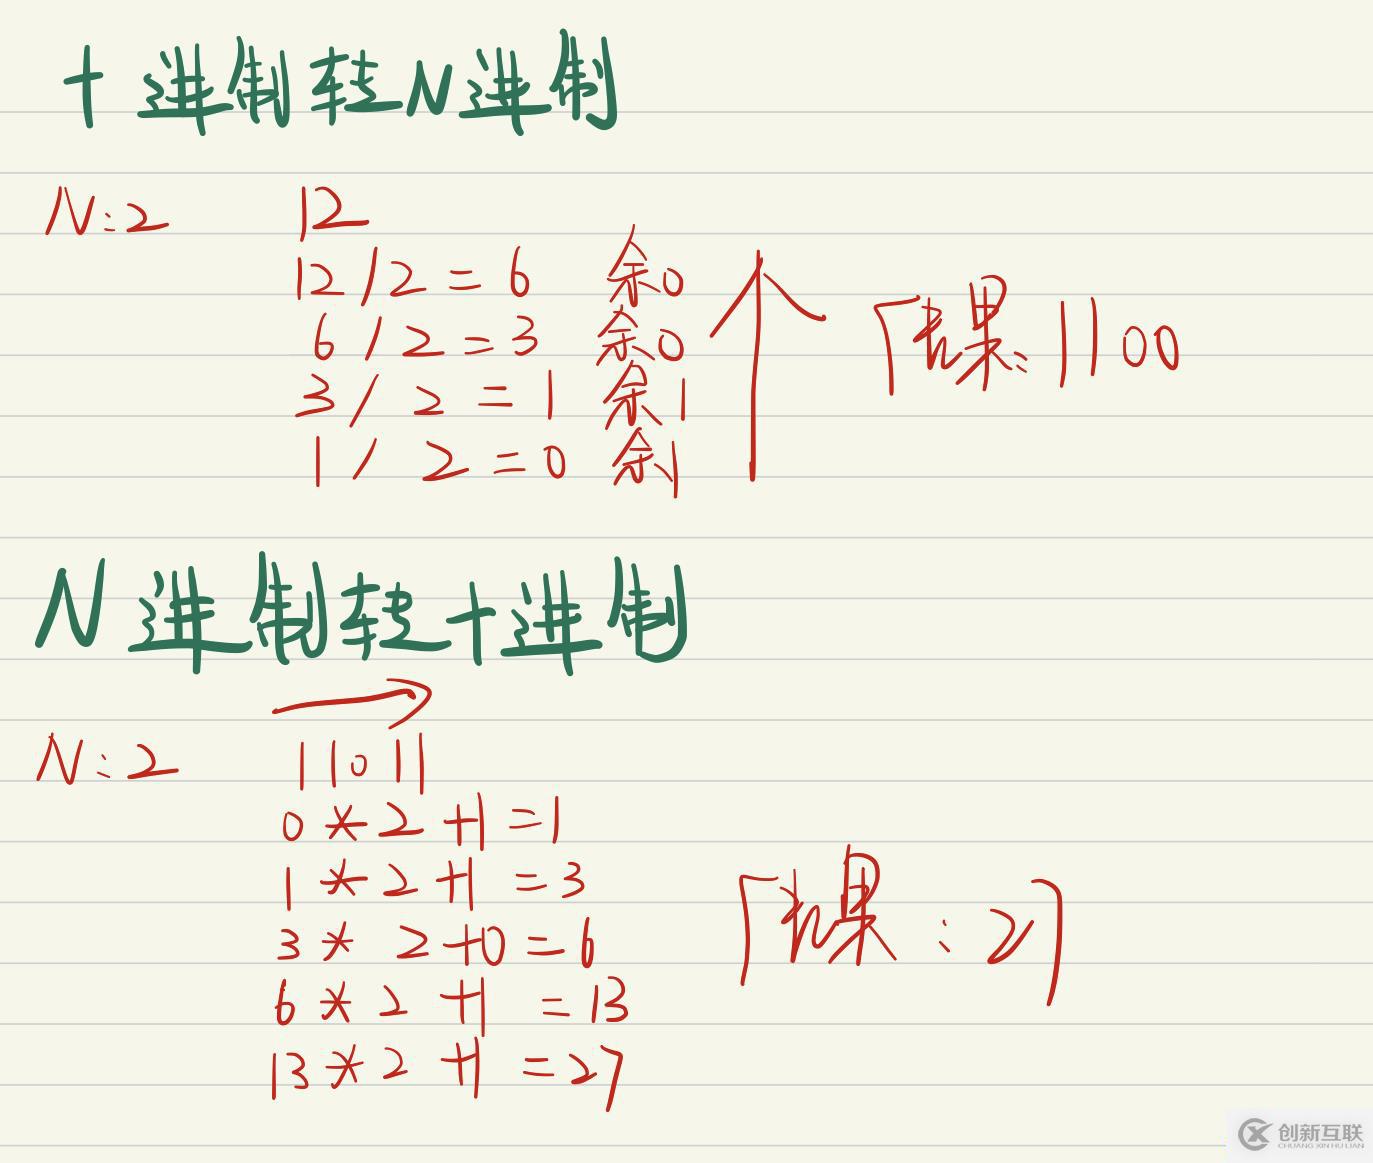 十进制转N进制
N:2 12
12/2=6 余0
6/2=3 余0
3/2=1 余1
1/2=0 余1
结果:1100
N进制转十进制
N:2 11011
0*2+1=1
1*2+1=3
3*2+0=6
6*2+1=13
13*2+1=27
结果:27
创新互联
CHUANG XIN HU LIAN